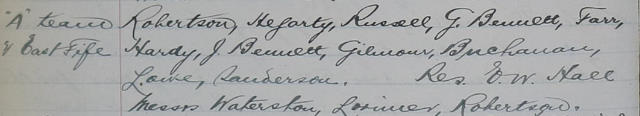 "A" team Robertson, Hegarty, Russell, G. Bennett, Farr,
v East Fife Hardy, J. Bennett, Gilmour, Buchanan,
Lowe, Sanderson. Res. E. W. Hall
Messrs Waterston, Lorimer, Robertson.